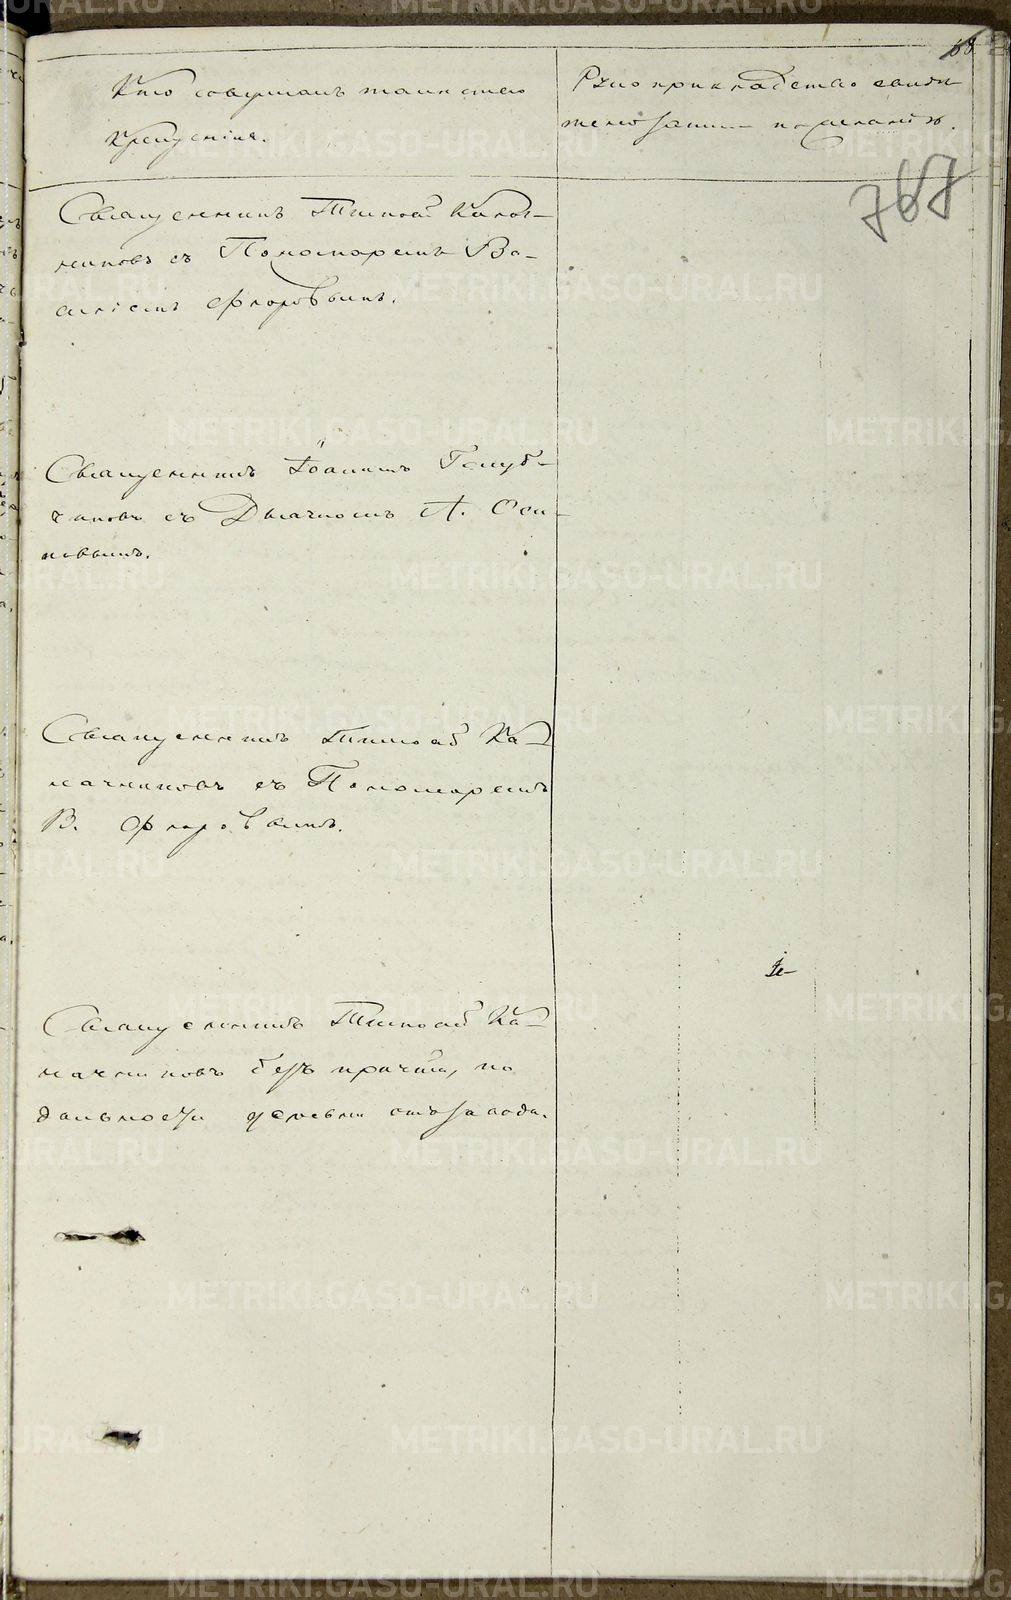 68
Кто совершалъ таинство
крещенія.
Рукоприкладство свидѣ
телей записи по желанію.
767
Священникъ Тимоѳей Калач-
никовъ съ Пономаремъ Ва-
силіемъ Флоровымъ.
Священникъ Іоаннъ Голуб-
чиковъ съ Дьячкомъ А. Оси-
повымъ.
Священникъ Тимоѳей Ка-
лачниковъ съ Пономаремъ
В. Флоровымъ.
Священникъ Тимоѳей Ка-
лачниковъ безъ причта, по
дальности деревни отъ завода.
METRIKI.GASO-URAL.RU